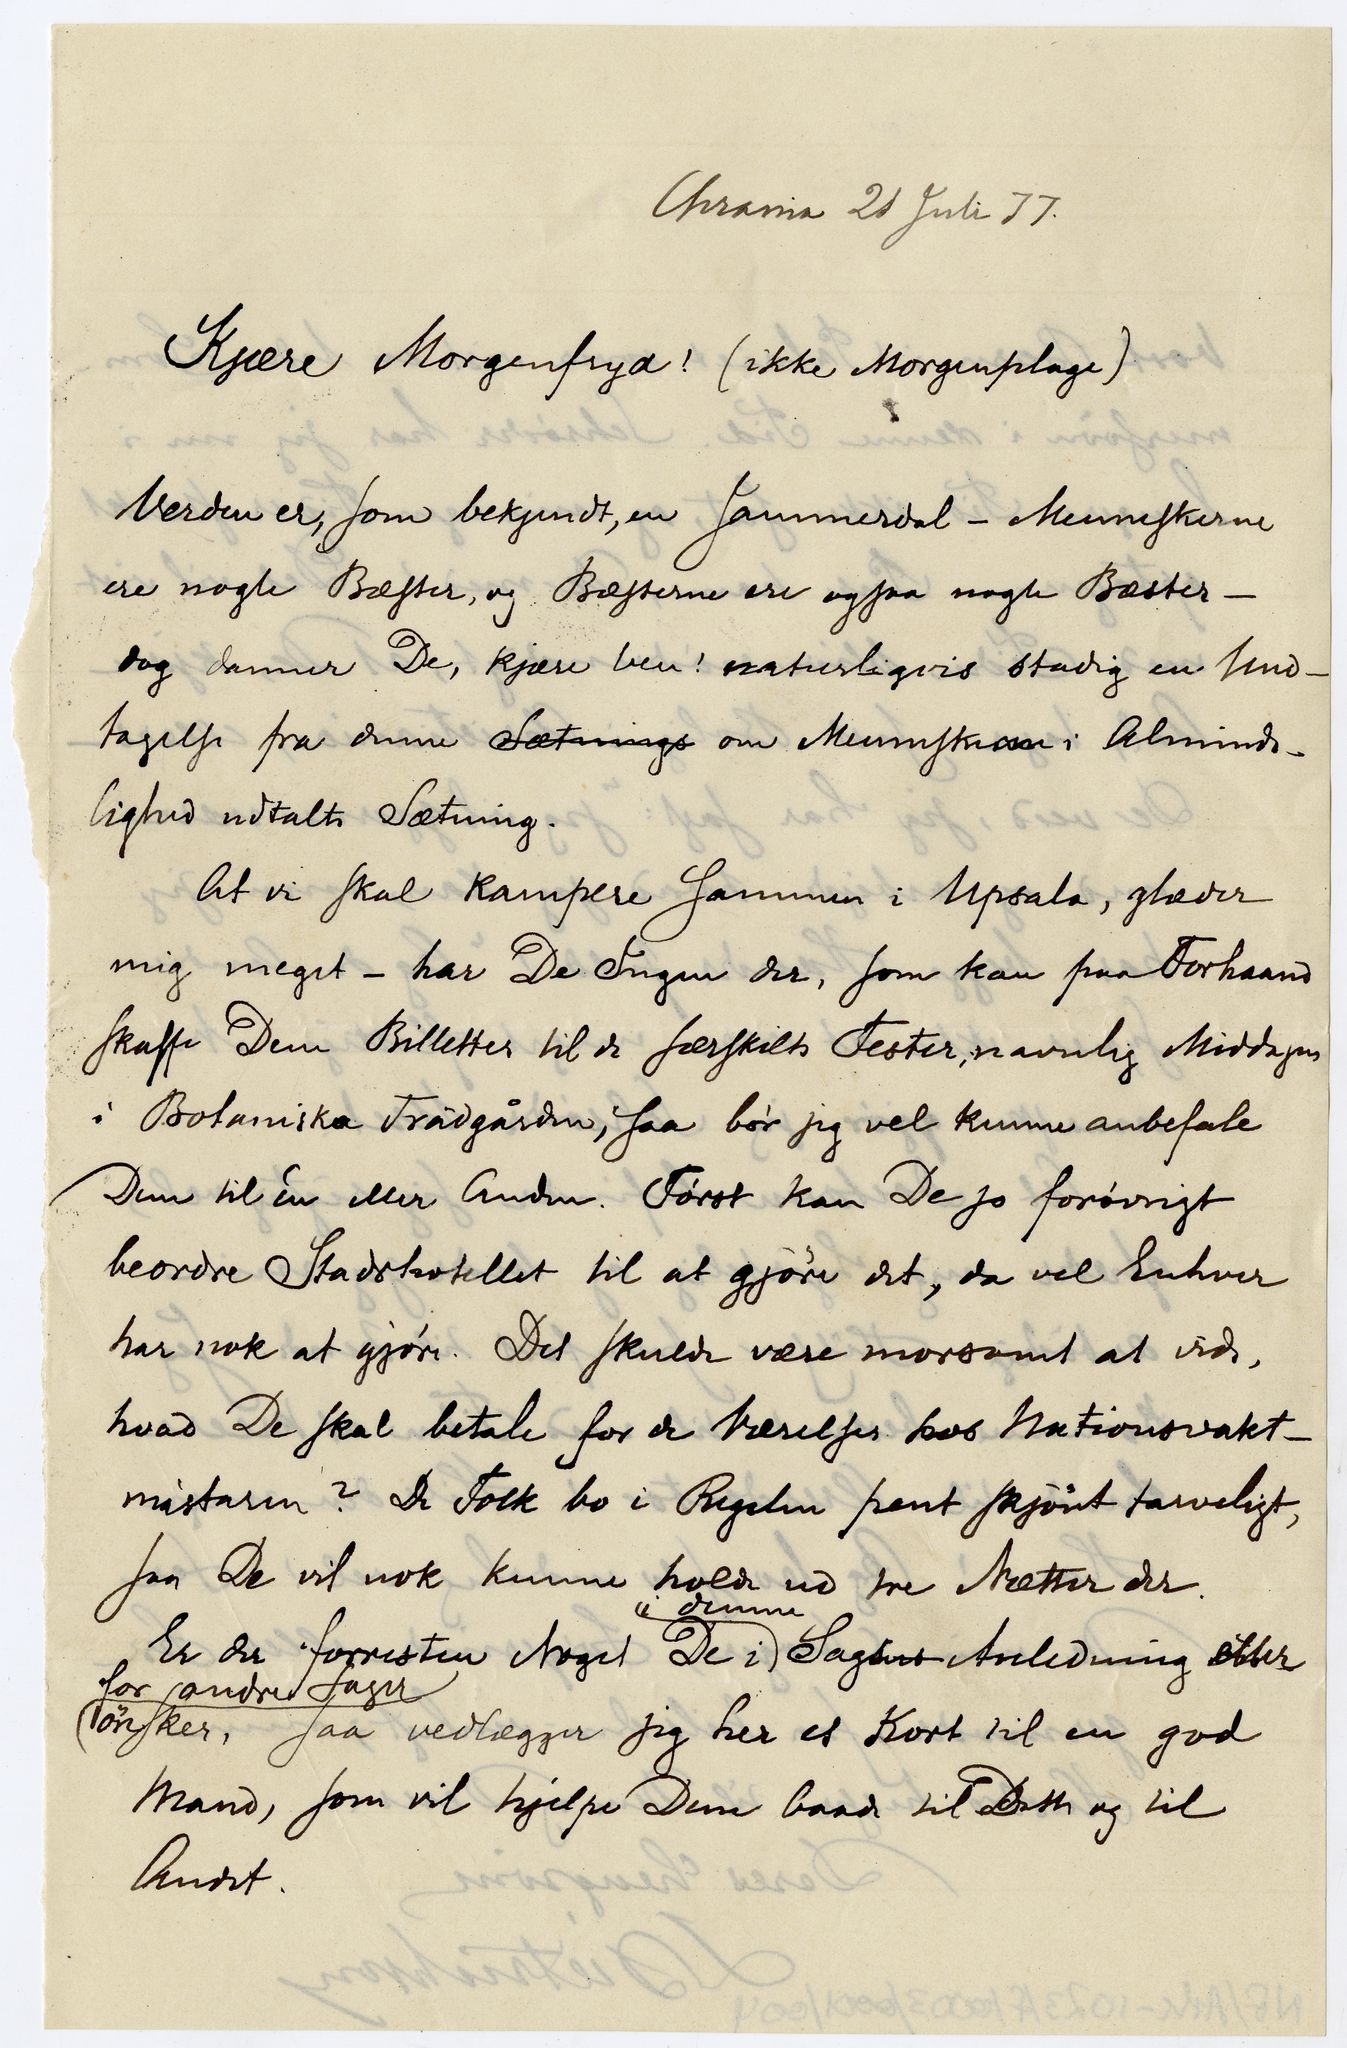 Chrania 21 Juli 77.
Kjære Morgenfryd! (ikke Morgenplage)
Verden er, som bekjendt, en Jammerdal - Menneskerne
ere nogle Bæster, og Bæsterne ere ogsaa nogle Bæster -
dog danner De, kjære Ven! naturligvis stadig en Und-
tagelse fra denne Sætnings om Menneskene i Alminde-
lighed udtalte Sætning.
At vi skal kampere sammen i Upsala, glæder
mig meget - har De Ingen der, som kan paa Forhaand
skaffe Dem Billetter til de særskilte Fester, navnlig Middagen
i Botaniska Trädgården, saa bör jeg vel kunne anbefale
Dem til én eller Anden. Först kan De jo forövrigt
beordre Stadshotellet til at gjöre det, da vel Enhver
har nok at gjöre. Det skulde være morsomt at vide,
hvad De skal betale for de Værelser hos Nationsvakt-
mästaren? De Folk bo i Regelen pent skjönt tarveligt,
saa De vil nok kunne holde ud tre Nætter der.
i denne
Er der forresten Noget De i Sagens Anledning eller
for andre Sager
önsker, saa vedlægger jeg her et Kort til en god
Mand, som vil hjelpe Dem baade til Dette og til
Andet.
Deres hengivne
L Dietrichson